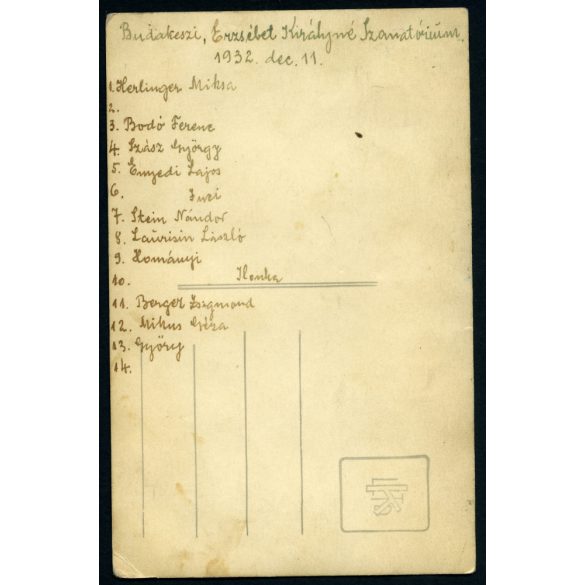 Budakeszi, Erzsébet Királyné Szanatórium.
1932. dec. 11.
1. Herlinger Miksa
2.
3. Bodó Ferenc
4. Szász György
5. Enyedi Lajos
6. Zsuzsi
7. Stein Nándor
8. Laurisin László
9. Hományi
10. Ilonka
11. Berger Zsigmond
12. Mikus Géza
13. Györy
14.